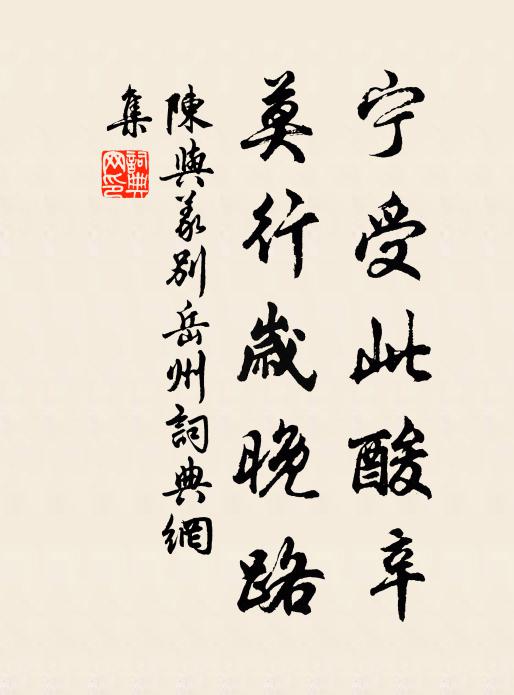 宁受此酸辛
莫行歲晚路
陳與義别岳州詞典網
集
詞典网印